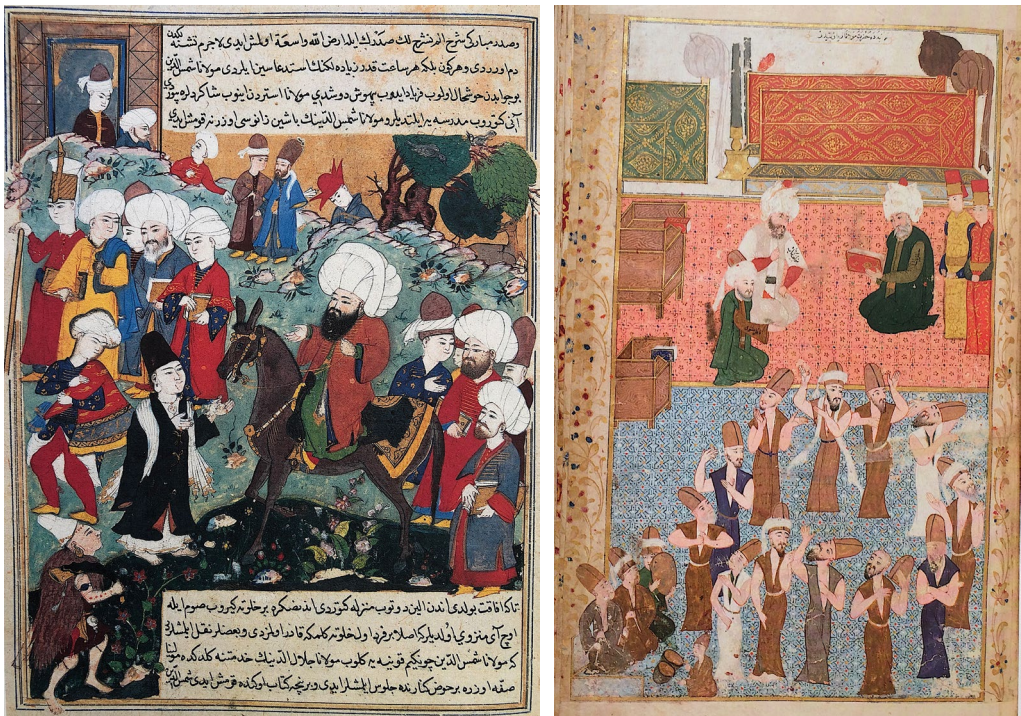 وصدر مباركی شرح الم نشرح لك صدرك ایله ارض الله واسعة اولمش ایدی لاجرم تشنه
دم اوردی و هر كون بلكه هر ساعت قدر زیاده لكنك استدعاسین ایلردی مولانا شمس الدین
بو جوابدن خوشحال اولوب فریاد ایدوب بیهوش دوشدی مولانا استردن اینوب شاكردلره بیوردی
آنی كوتروب مدرسه یه ایلتدیلر و مولانا شمس الدینك باشین زانوسی اوزرنه قومش ایدی
تا كه افاقت بولدی اندن الین دوتوب منزله كوتردی اندن صكره بر خلوته كیروب صوم ایله
اوچ آی منزوی اولدیلر كه اصلا بر فرد اول خلوته كلمكه قادر اولمزدی و بعضلر نقل ایلشلردر
كه مولانا شمس الدین چونكیم قونیه یه كلوب مولانا جلال الدینك خدمتنه كلدكده مولانا
صفه اوزره بر حوض كنارنده جلوس ایلمشلر ایدی و بر نیچه كتاب اوكنده قومش ایدی شمس الدین